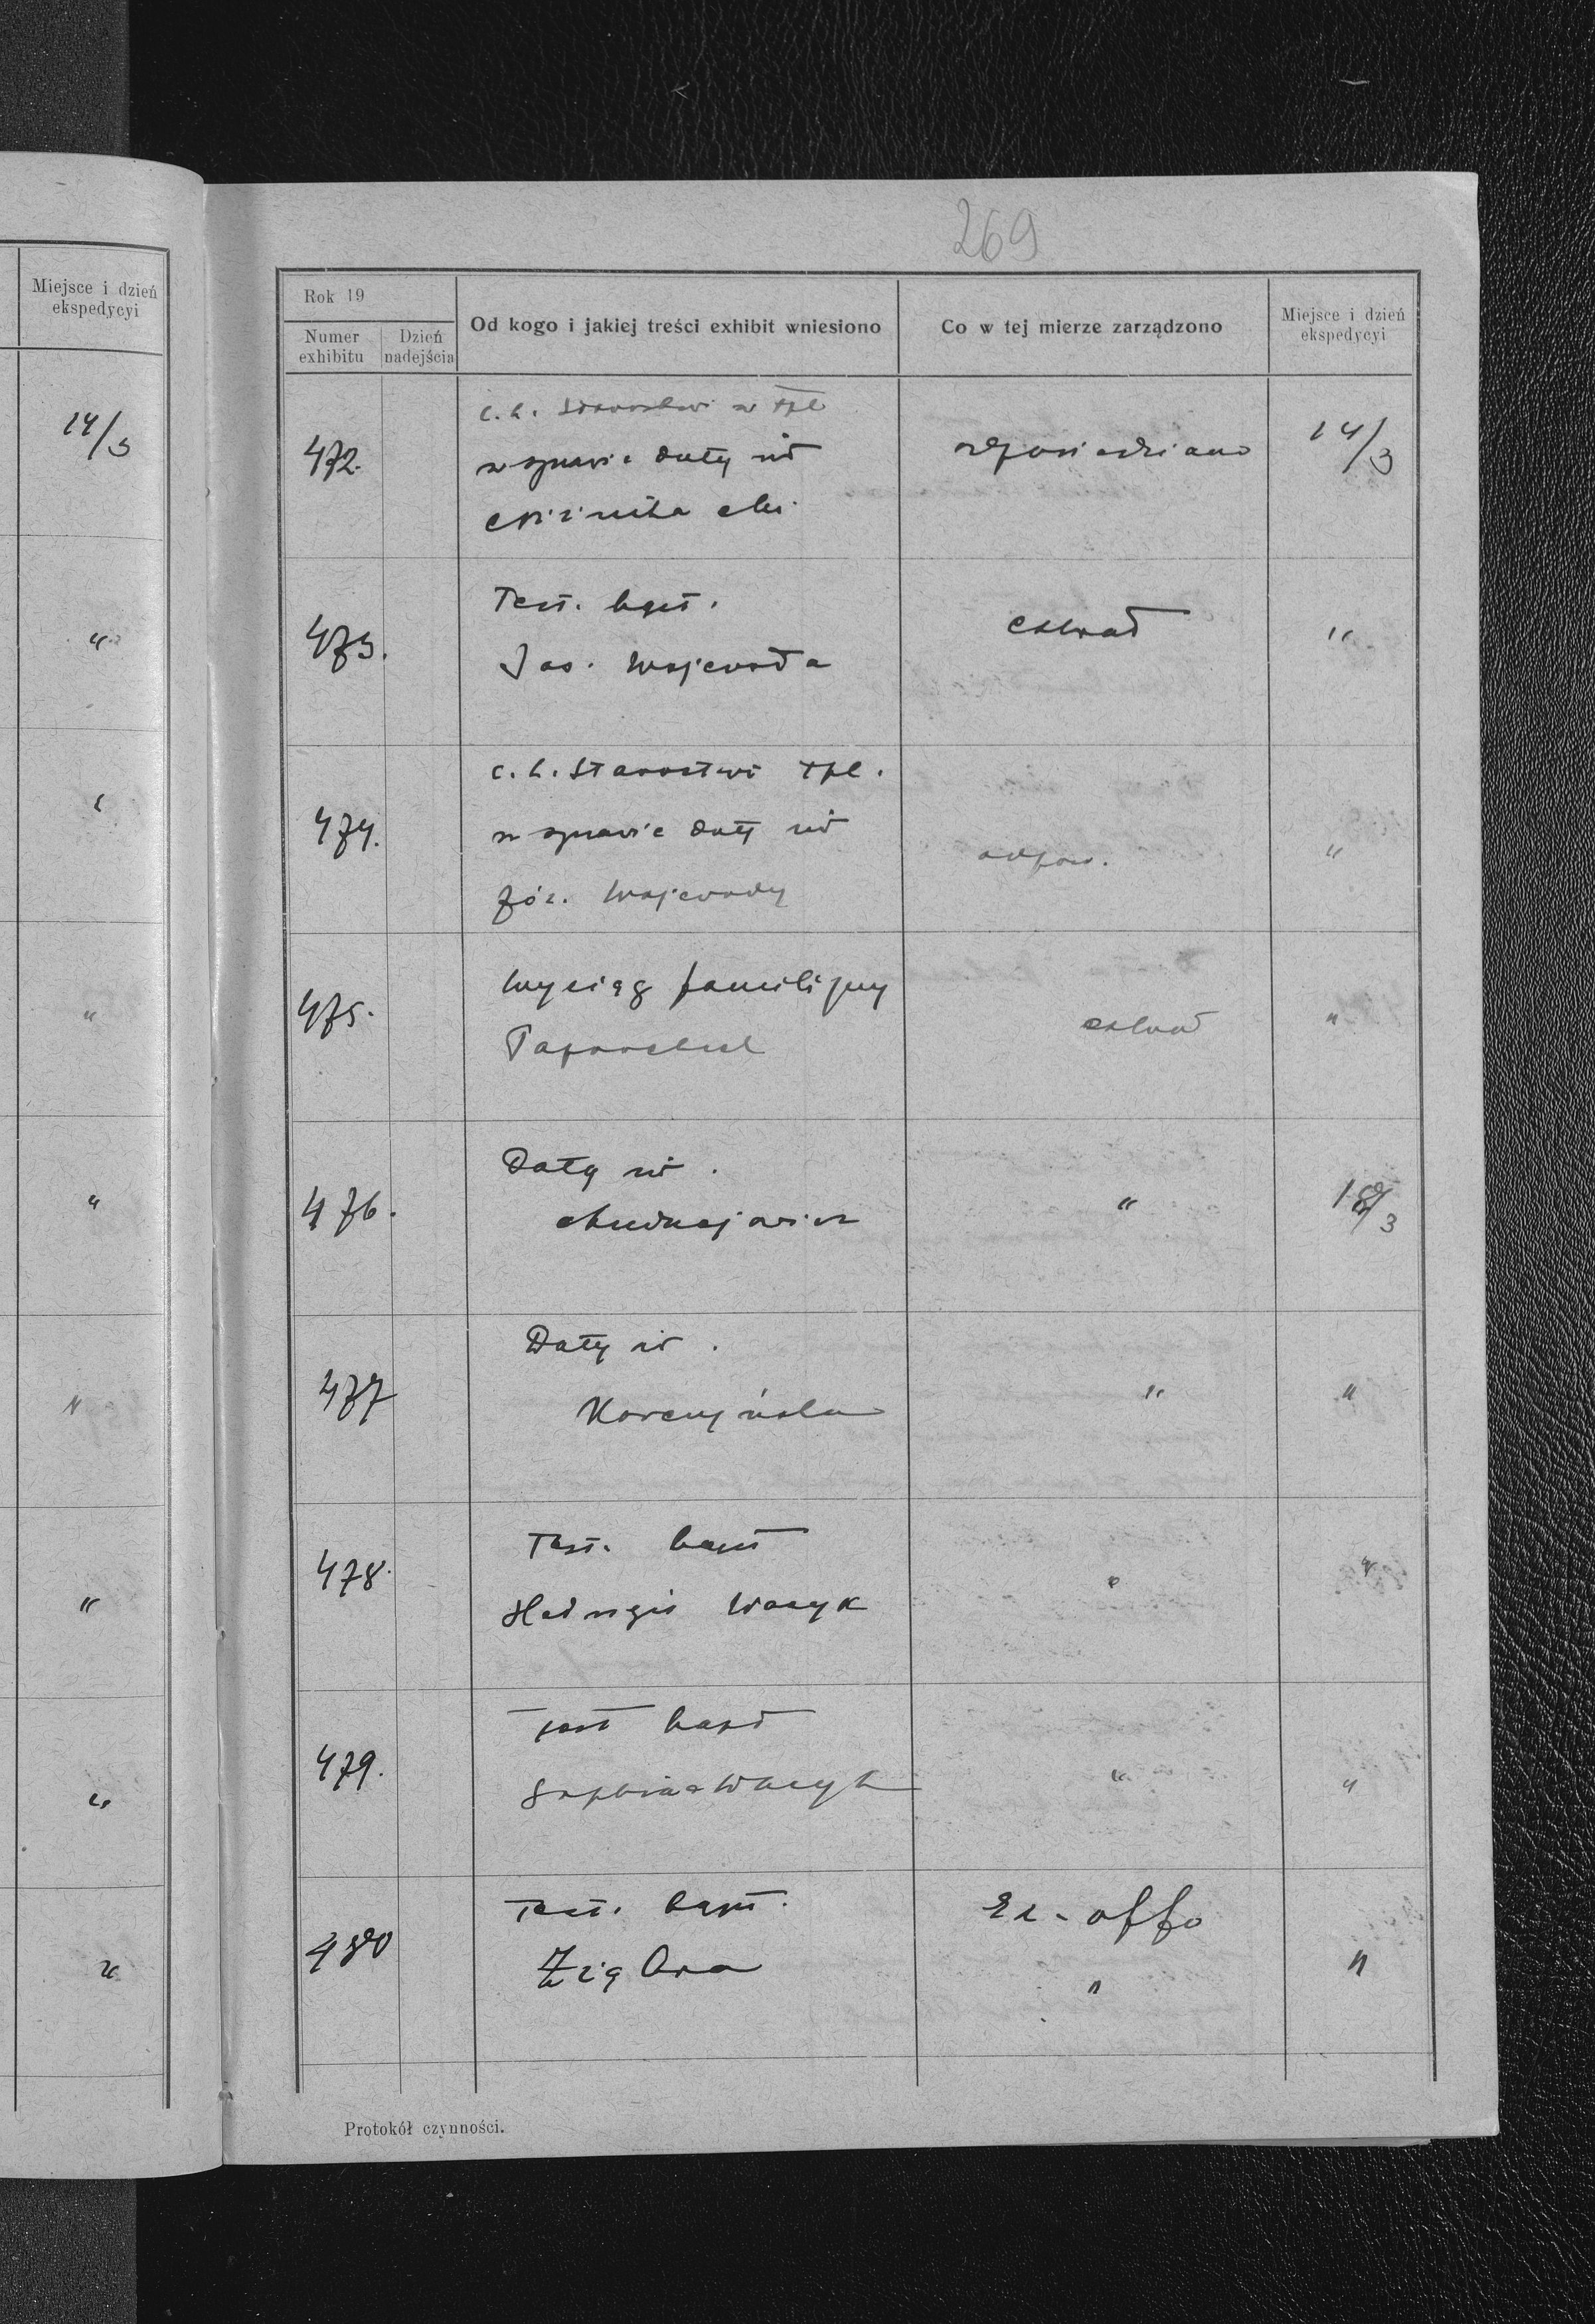 269
Miejsce i dzień
ekspedycyi
14/3
"
"
"
"
"
"
"
"
Rok 19
Numer
exhibitu
Dzień
nadejścia
Od kogo i jakiej treści exhibit wniesiono
Co w tej mierze zarządzono
Miejsce i dzień
ekspedycyi
472.
c. k. Starostwo w Tpl
w sprawie daty ur
odpowiedziano
14/3
473.
Test. bapt.
Jos. Wojewoda
extrad
"
474.
c. k. Starostwo Tpl.
w sprawie daty ur
Józ. Wojewody
odpow.
"
475.
Wyciąg familijny
extrad
"
476.
Daty ur.
"
18/3
477
Daty ur.
Korczyńska
"
"
478.
Test. bapt
Hedvigis Wacyk
"
"
479.
Test bapt
Sophia Wacyk
"
"
480
Test. bapt.
Ex-offo
"
"
Protokół czynności.